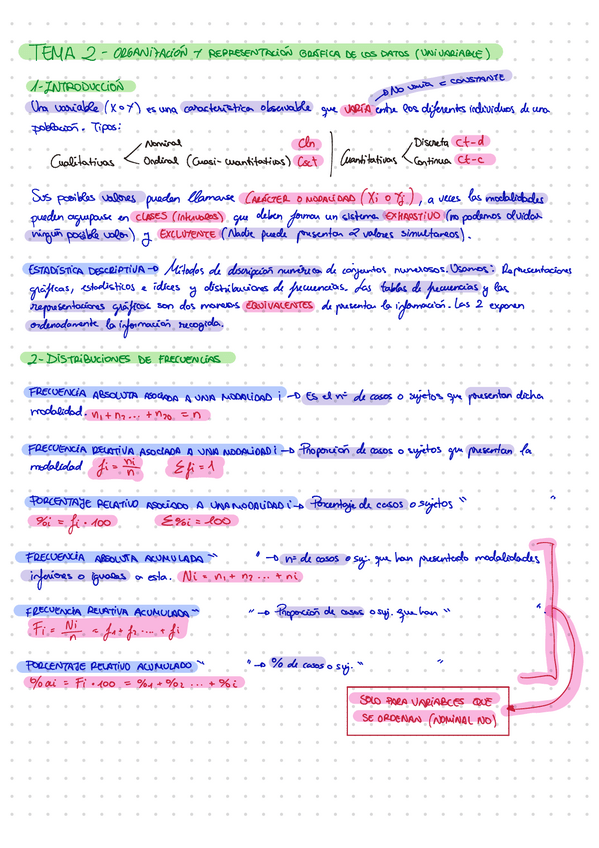 TEMA 2 - ORGANIZACIÓN Y REPRESENTACIÓN GRÁFICA DE LOS DATOS (UNIVARIABLE)
1-INTRODUCCIÓN
→ No varía = CONSTANTE
Una variable (X o Y) es una característica observable que VARÍA entre los diferentes individuos de una
población. Tipos:
Cualitativas < Nominal Cln
Ordinal (Cuasi-cuantitativas) Cuct
Cuantitativas < Discreta ct-d
Continua ct-c
Sus posibles valores pueden llamarse CARÁCTER O MODALIDAD (Xi o Yj), a veces las modalidades
pueden agruparse en CLASES (Intervalos) que deben formar un sistema EXHAUSTIVO (no podemos olvidar
ningún posible valor) y EXCLUYENTE (Nadie puede presentar 2 valores simultaneos).
ESTADÍSTICA DESCRIPTIVA → Métodos de descripción numérica de conjuntos numerosos. Usamos: Representaciones
gráficas, estadísticos e idices y distribuciones de frecuencias. Las tablas de frecuencias y las
representaciones gráficas son dos maneras EQUIVALENTES de presentar la información. Las 2 exponen
ordenadamente la información recogida.
2-DISTRIBUCIONES DE FRECUENCIAS
FRECUENCIA ABSOLUTA ASOCIADA A UNA MODALIDAD i → Es el nº de casos o sujetos que presentan dicha
modalidad. n₁+n₂...+n₂₀ = n
FRECUENCIA RELATIVA ASOCIADA A UNA MODALIDAD i → Proporción de casos o sujetos que presentan la
modalidad fi = ni/n Σfi = 1
PORCENTAJE RELATIVO ASOCIADO A UNA MODALIDAD i → Porcentaje de casos o sujetos " "
%i = fi · 100 Σ%i = 100
FRECUENCIA ABSOLUTA ACUMULADA " " → nº de casos o suj. que han presentado modalidades
inferiores o iguales a esta. Ni = n₁ + n₂ ... + ni
FRECUENCIA RELATIVA ACUMULADA " " → Proporción de casos o suj. que han " ".
Fi = Ni/n = f₁ + f₂ .... + fi
PORCENTAJE RELATIVO ACUMULADO " " → % de casos o suj. " "
%ai = Fi · 100 = %₁ + %₂ ... + %i
SOLO PARA VARIABLES QUE
SE ORDENAN (NOMINAL NO)